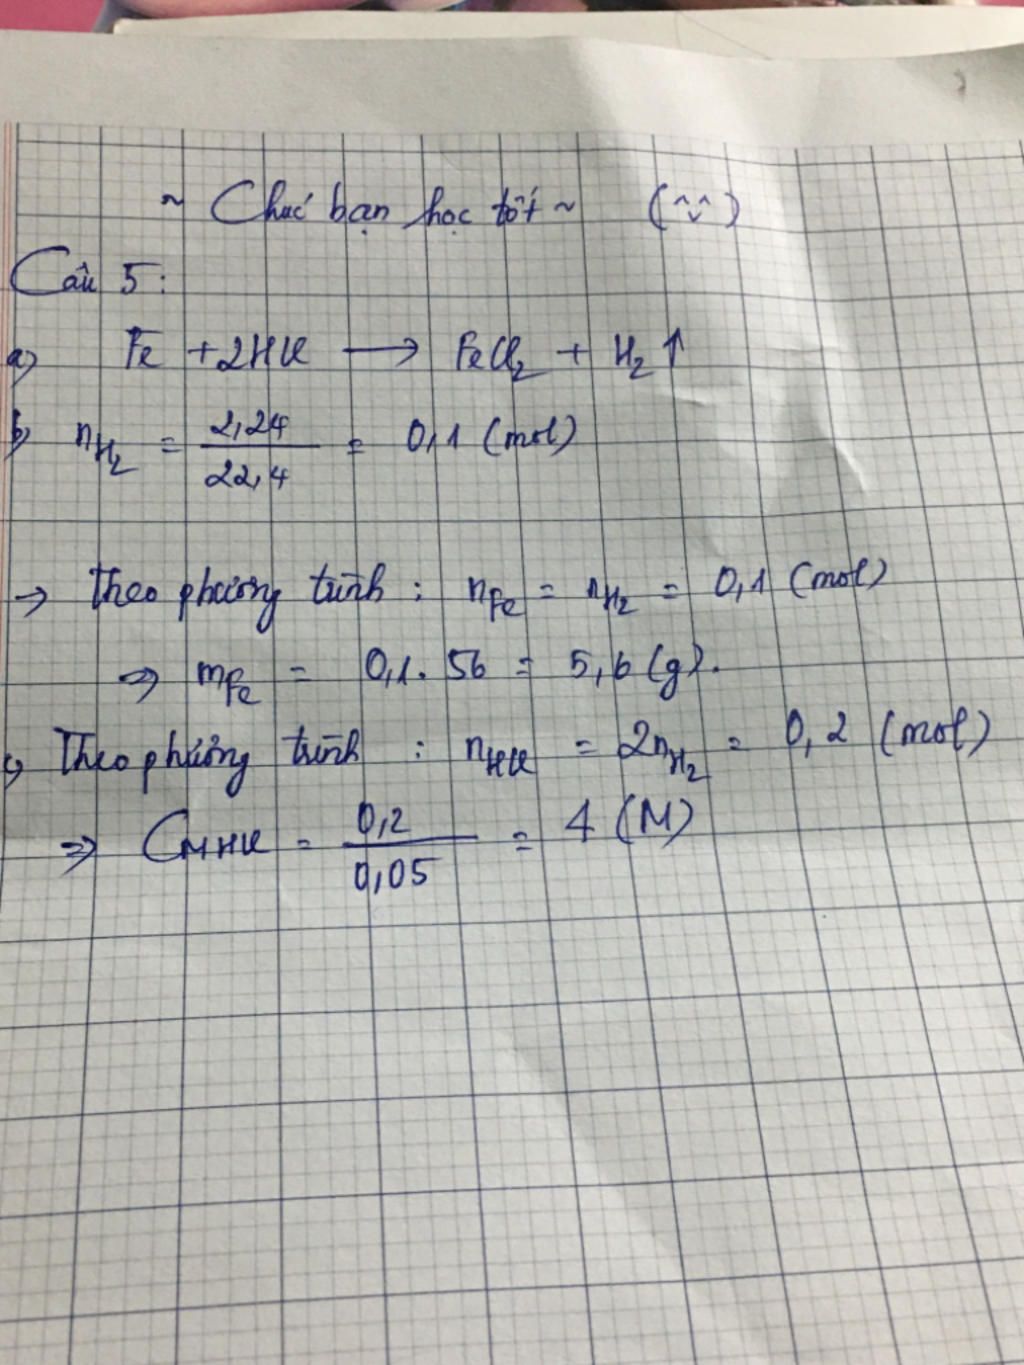 ~ Chúc bạn học tốt ~ (^v^)
Câu 5:
a) Fe + 2HCl → FeCl₂ + H₂↑
b) nH₂ = 2,24 / 22,4 = 0,1 (mol)
→ Theo phương trình : nFe = nH₂ = 0,1 (mol)
⇒ mFe = 0,1 . 56 = 5,6 (g).
c) Theo phương trình : nHCl = 2nH₂ = 0,2 (mol)
⇒ CMHCl = 0,2 / 0,05 = 4 (M)